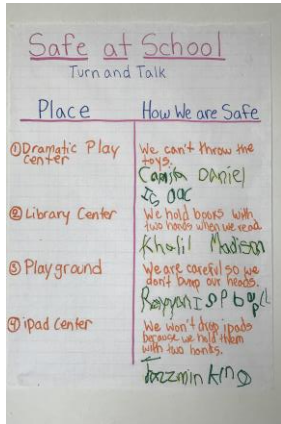 Safe at School
Turn and Talk
Place
How We are Safe
① Dramatic Play
Center
We can't throw the
toys.
Camila Daniel
② Library Center
We hold books with
two hands when we read.
Khalil Madison
③ Playground
We are careful so we
don't bump our heads.
④ iPad Center
We won't drop ipads
because we hold them
with two hands.
Jazzmin King